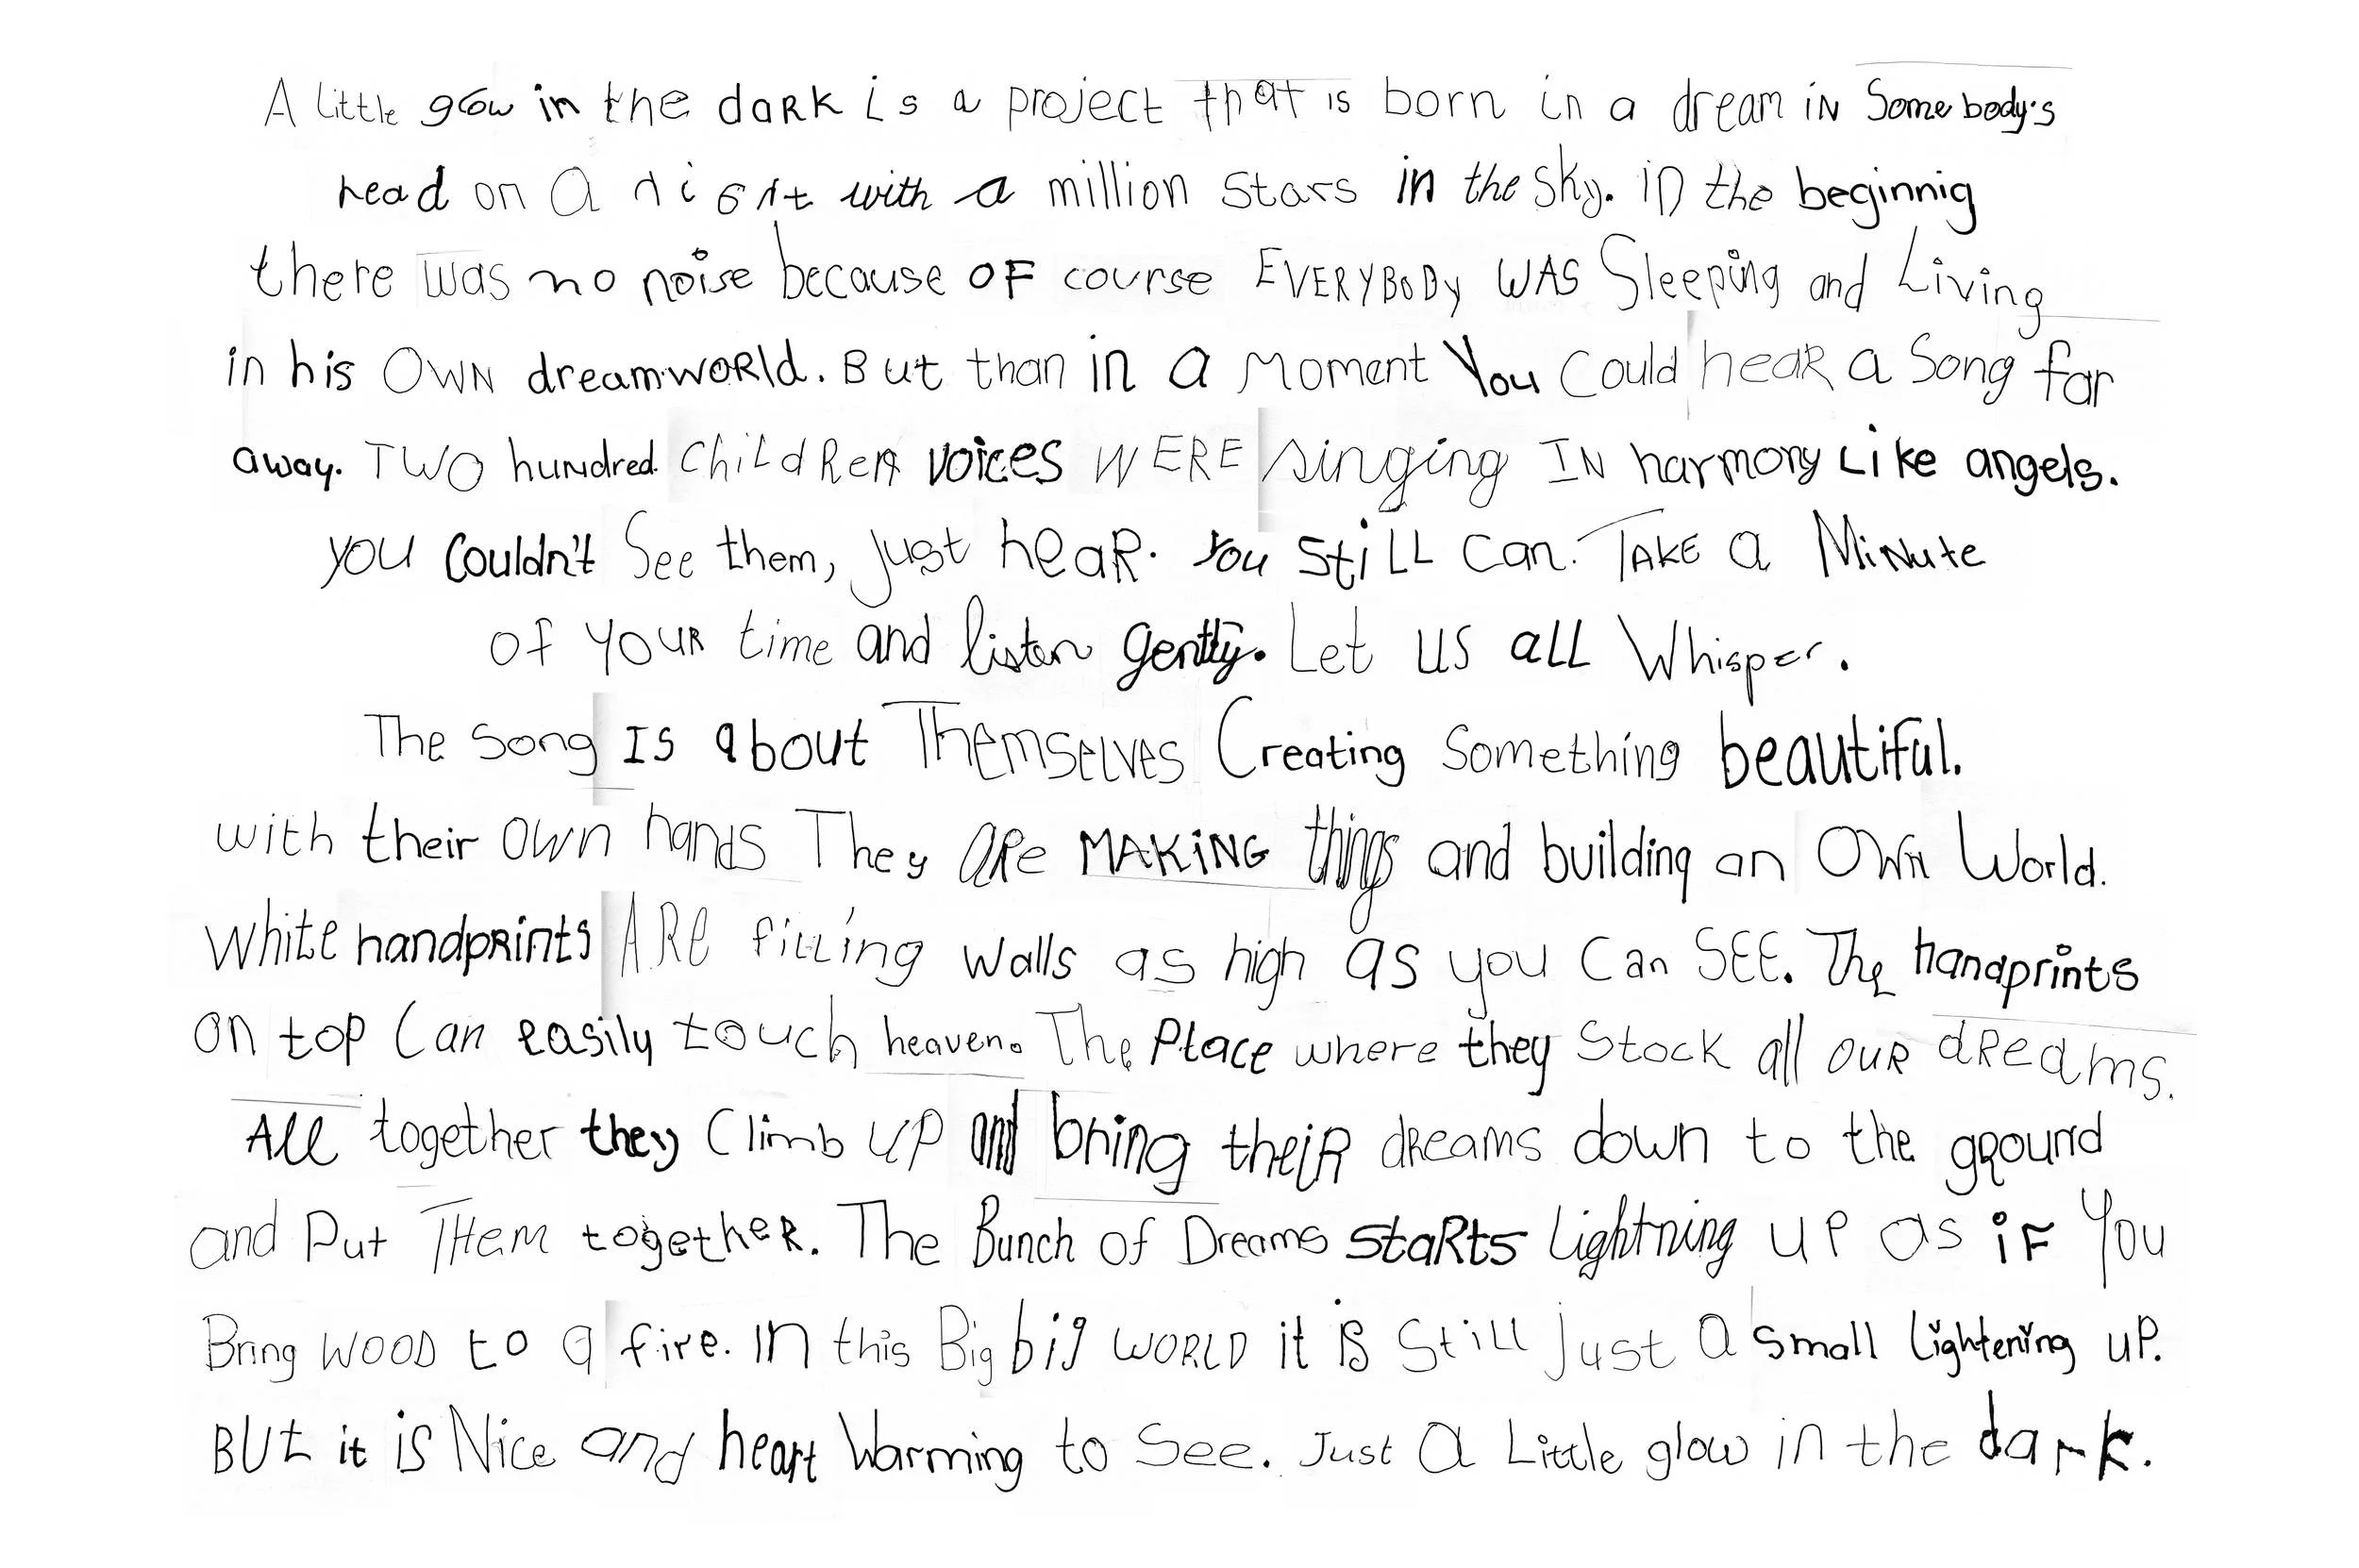 A Little glow in the daRK is a project that is born in a dream iN Somebody's
head on a night with a million Stars in the sky. in the beginnig
there was no noise because OF course EVERYBODy WAS Sleeping and Living
in his OWN dreamwoRld. But than in a Moment You Could heaR a Song far
away. TWO huNdred ChiLdRen voices WERE singing IN harmony Like angels.
you Couldn't See them, just heaR. You StiLL Can. TAKE a MiNute
of YOUR time and listen gently. Let us aLL Whisper.
The Song IS about ThEmSELVES Creating Something beautiful.
with their own hands They aRe MAKiNG things and building an OWn World.
White handpRints ARe fiLLing walls as high as you Can SEE. The handprints
on top Can easily touch heaven. The PLace where they Stock all ouR dReams.
ALL together they Climb UP and bring theiR dReams down to the gRound
and Put THem togetheR. The Bunch of Dreams StaRts Lightning up as iF You
Bring WOOD to a fire. In this Big big WORLD it iS Still just a small Lightening uP.
BUt it is Nice and heart Warming to See. Just a Little glow in the dark.